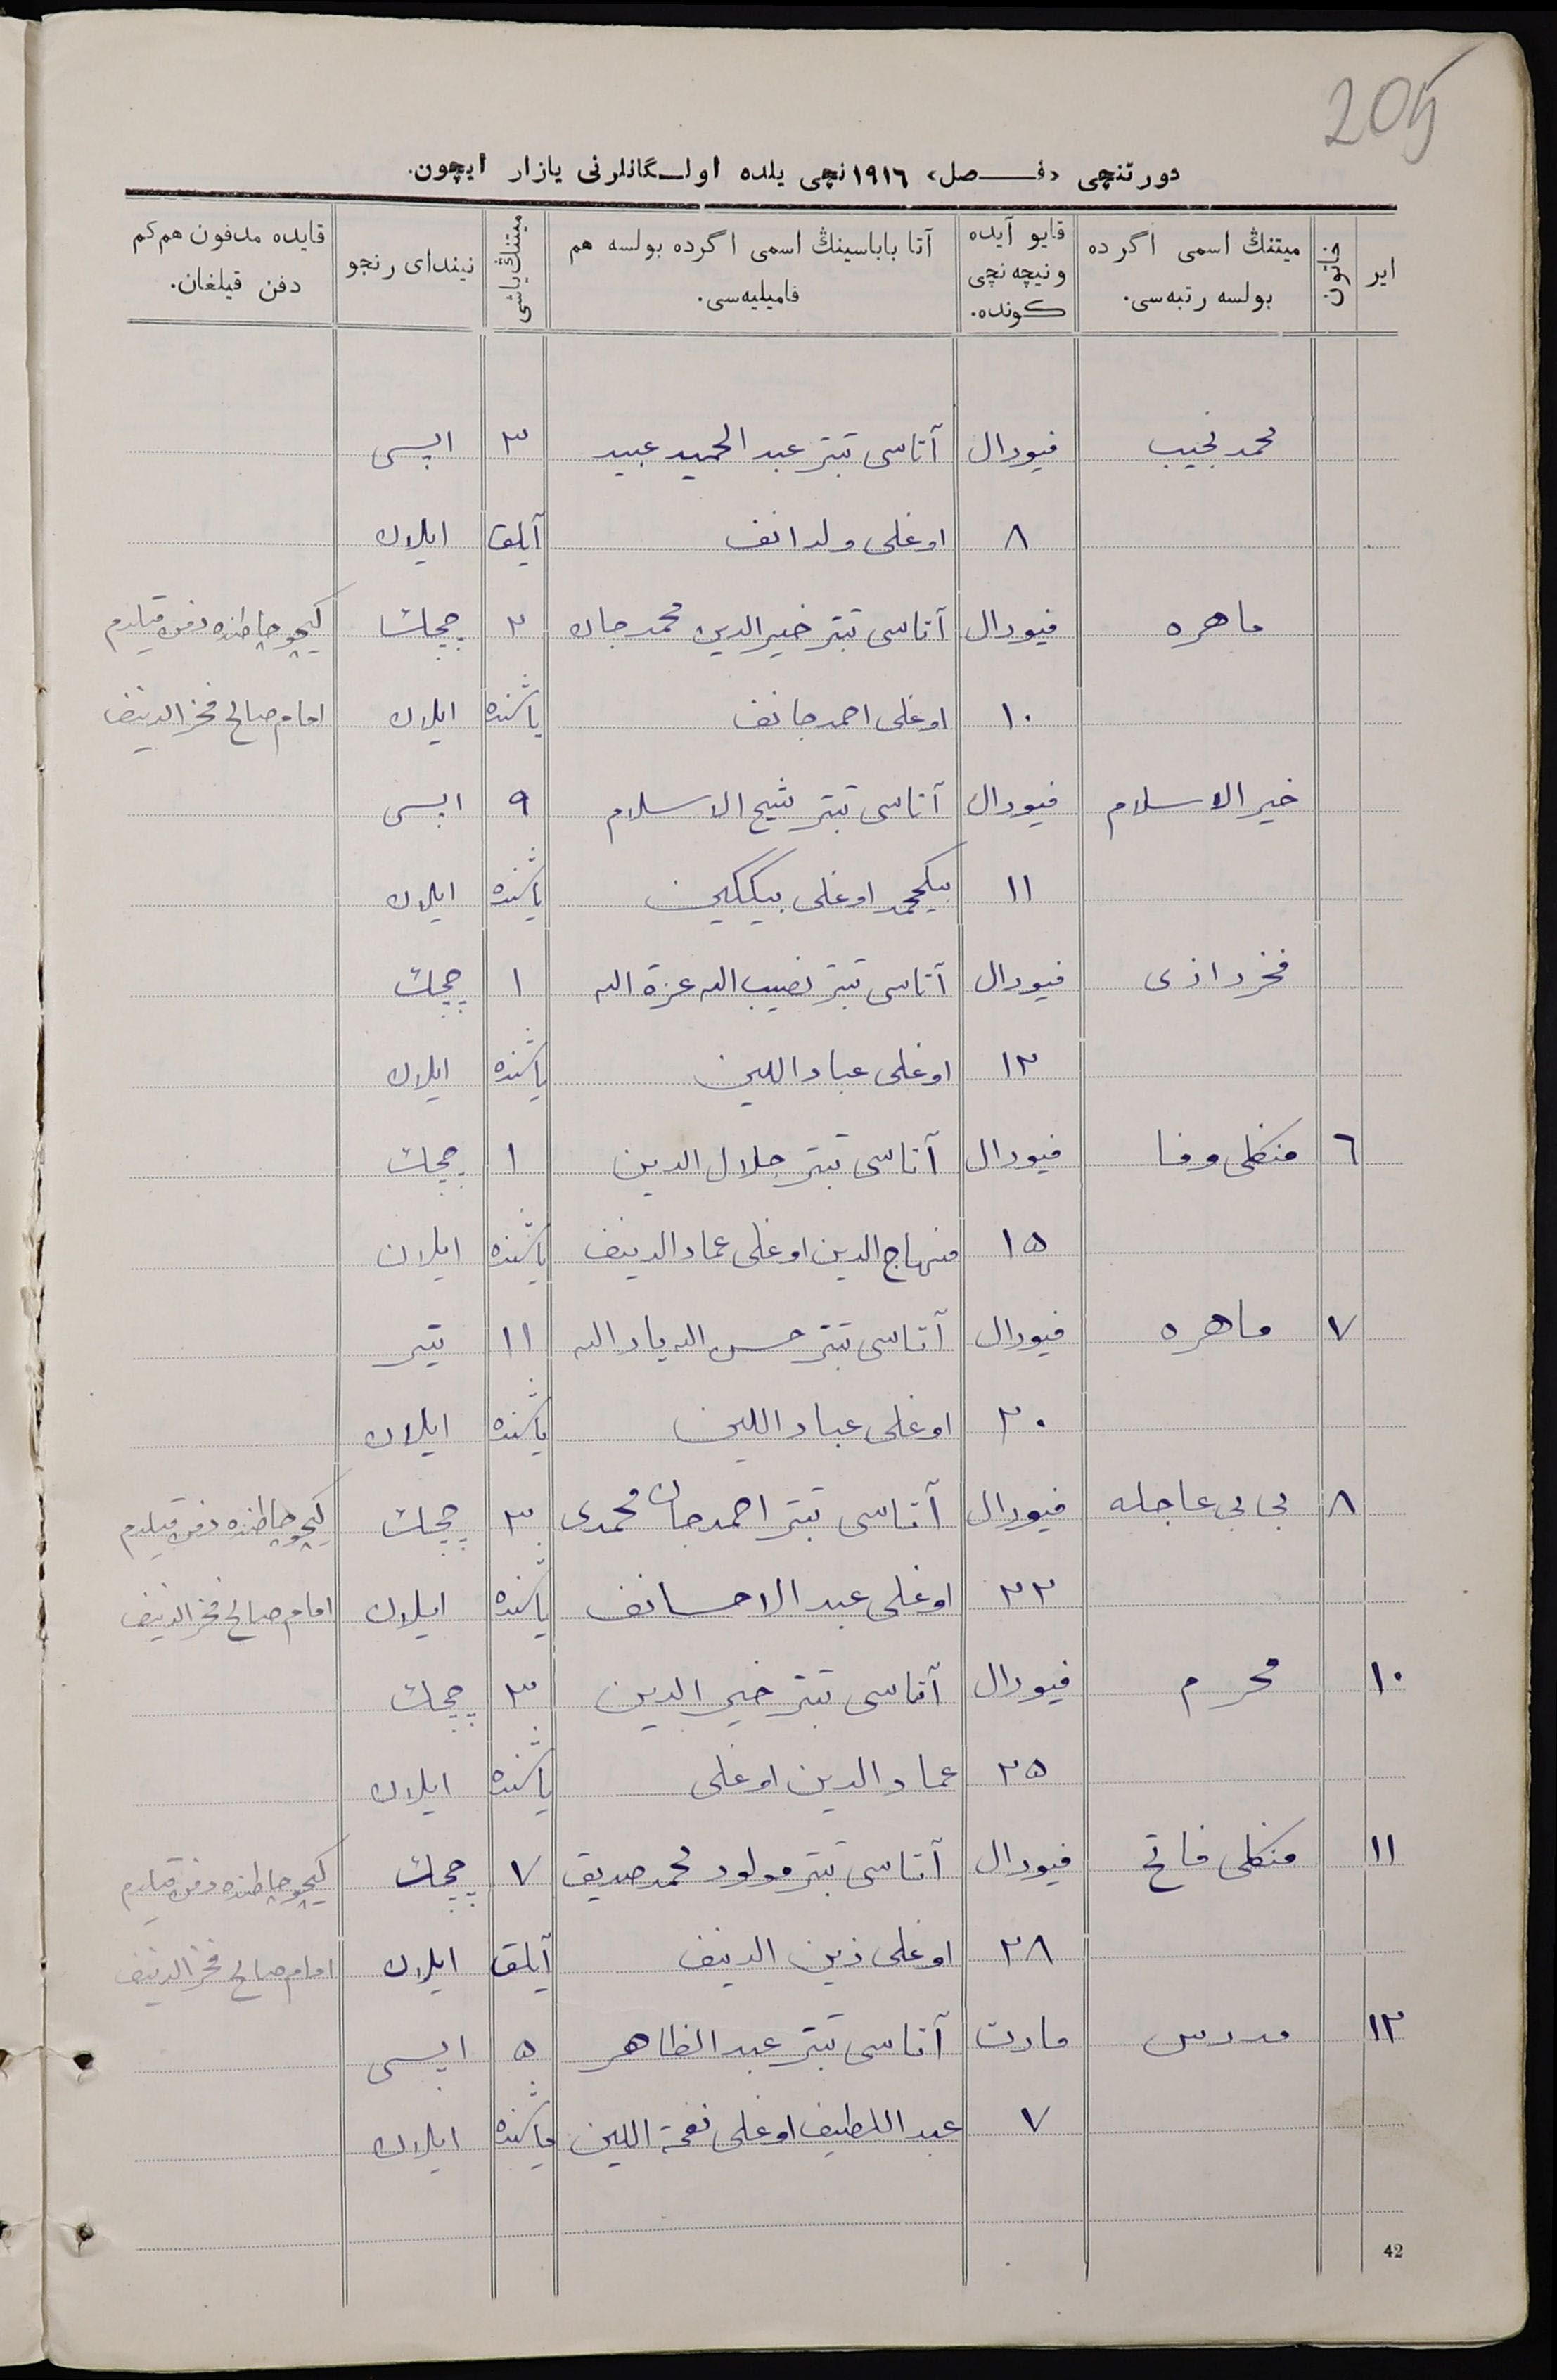 205
دورتنچی «فـــصل» ١٩١٦نچی یلده اولـــگانلرنی یازار ایچون.
ایر
خاتون
میتنڭ اسمی اگرده بولسه رتبه‌سی.
قایو آیده ونیچه نچی كونده.
آتا باباسینڭ اسمی اگرده بولسه هم فامیلیه‌سی.
میتنڭ یاشی
نیندای رنجو
قایده مدفون هم كم دفن قیلغان.
محمد نجیب فیورال آتاسی تبتر عبد الحمید عبید ٣ ایسی
٨ اوغلی ولدانف آیلق ایلان
ماهره فیورال آتاسی تبتر خیر الدین محمد جان ٢ چچك كیچو چاطنده دفن قیلدم
١٠ اوغلی احمدجانف یاشنده ایلان امام صالح فخر الدینف
خیر الاسلام فیورال آتاسی تبتر شیخ الاسلام ٩ ایسی
١١ بیكمحمد اوغلی یاشنده ایلان
فخر رازی فیورال آتاسی تبتر نصیب الله عزة الله ١ چچك
١٢ اوغلی عباد اللین یاشنده ایلان
٦ منكلی وفا فیورال آتاسی تبتر جلال الدین ١ چچك
١٥ منهاج الدین اوغلی عماد الدینف یاشنده ایلان
٧ ماهره فیورال آتاسی تبتر حسن الله یاد الله ١١ تیتر
٢٠ اوغلی عباد اللین یاشنده ایلان
٨ بی بی عاجله فیورال آتاسی تبتر احمدجان محمدی ٣ چچك كیچو چاطنده دفن قیلدم
٢٢ اوغلی عبد الاحسانف یاشنده ایلان امام صالح فخر الدینف
١٠ محرم فیورال آتاسی تبتر خیر الدین ٣ چچك
٢٥ عماد الدین اوغلی یاشنده ایلان
١١ منكلی فاتح فیورال آتاسی تبتر مولود محمد صدیق ٧ چچك كیچو چاطنده دفن قیلدم
٢٨ اوغلی زین الدینف آیلق ایلان امام صالح فخر الدینف
١٢ مدرس مارت آتاسی تبتر عبد الظاهر ٥ ایسی
٧ عبد اللطیف اوغلی نعمة اللین یاشنده ایلان
42